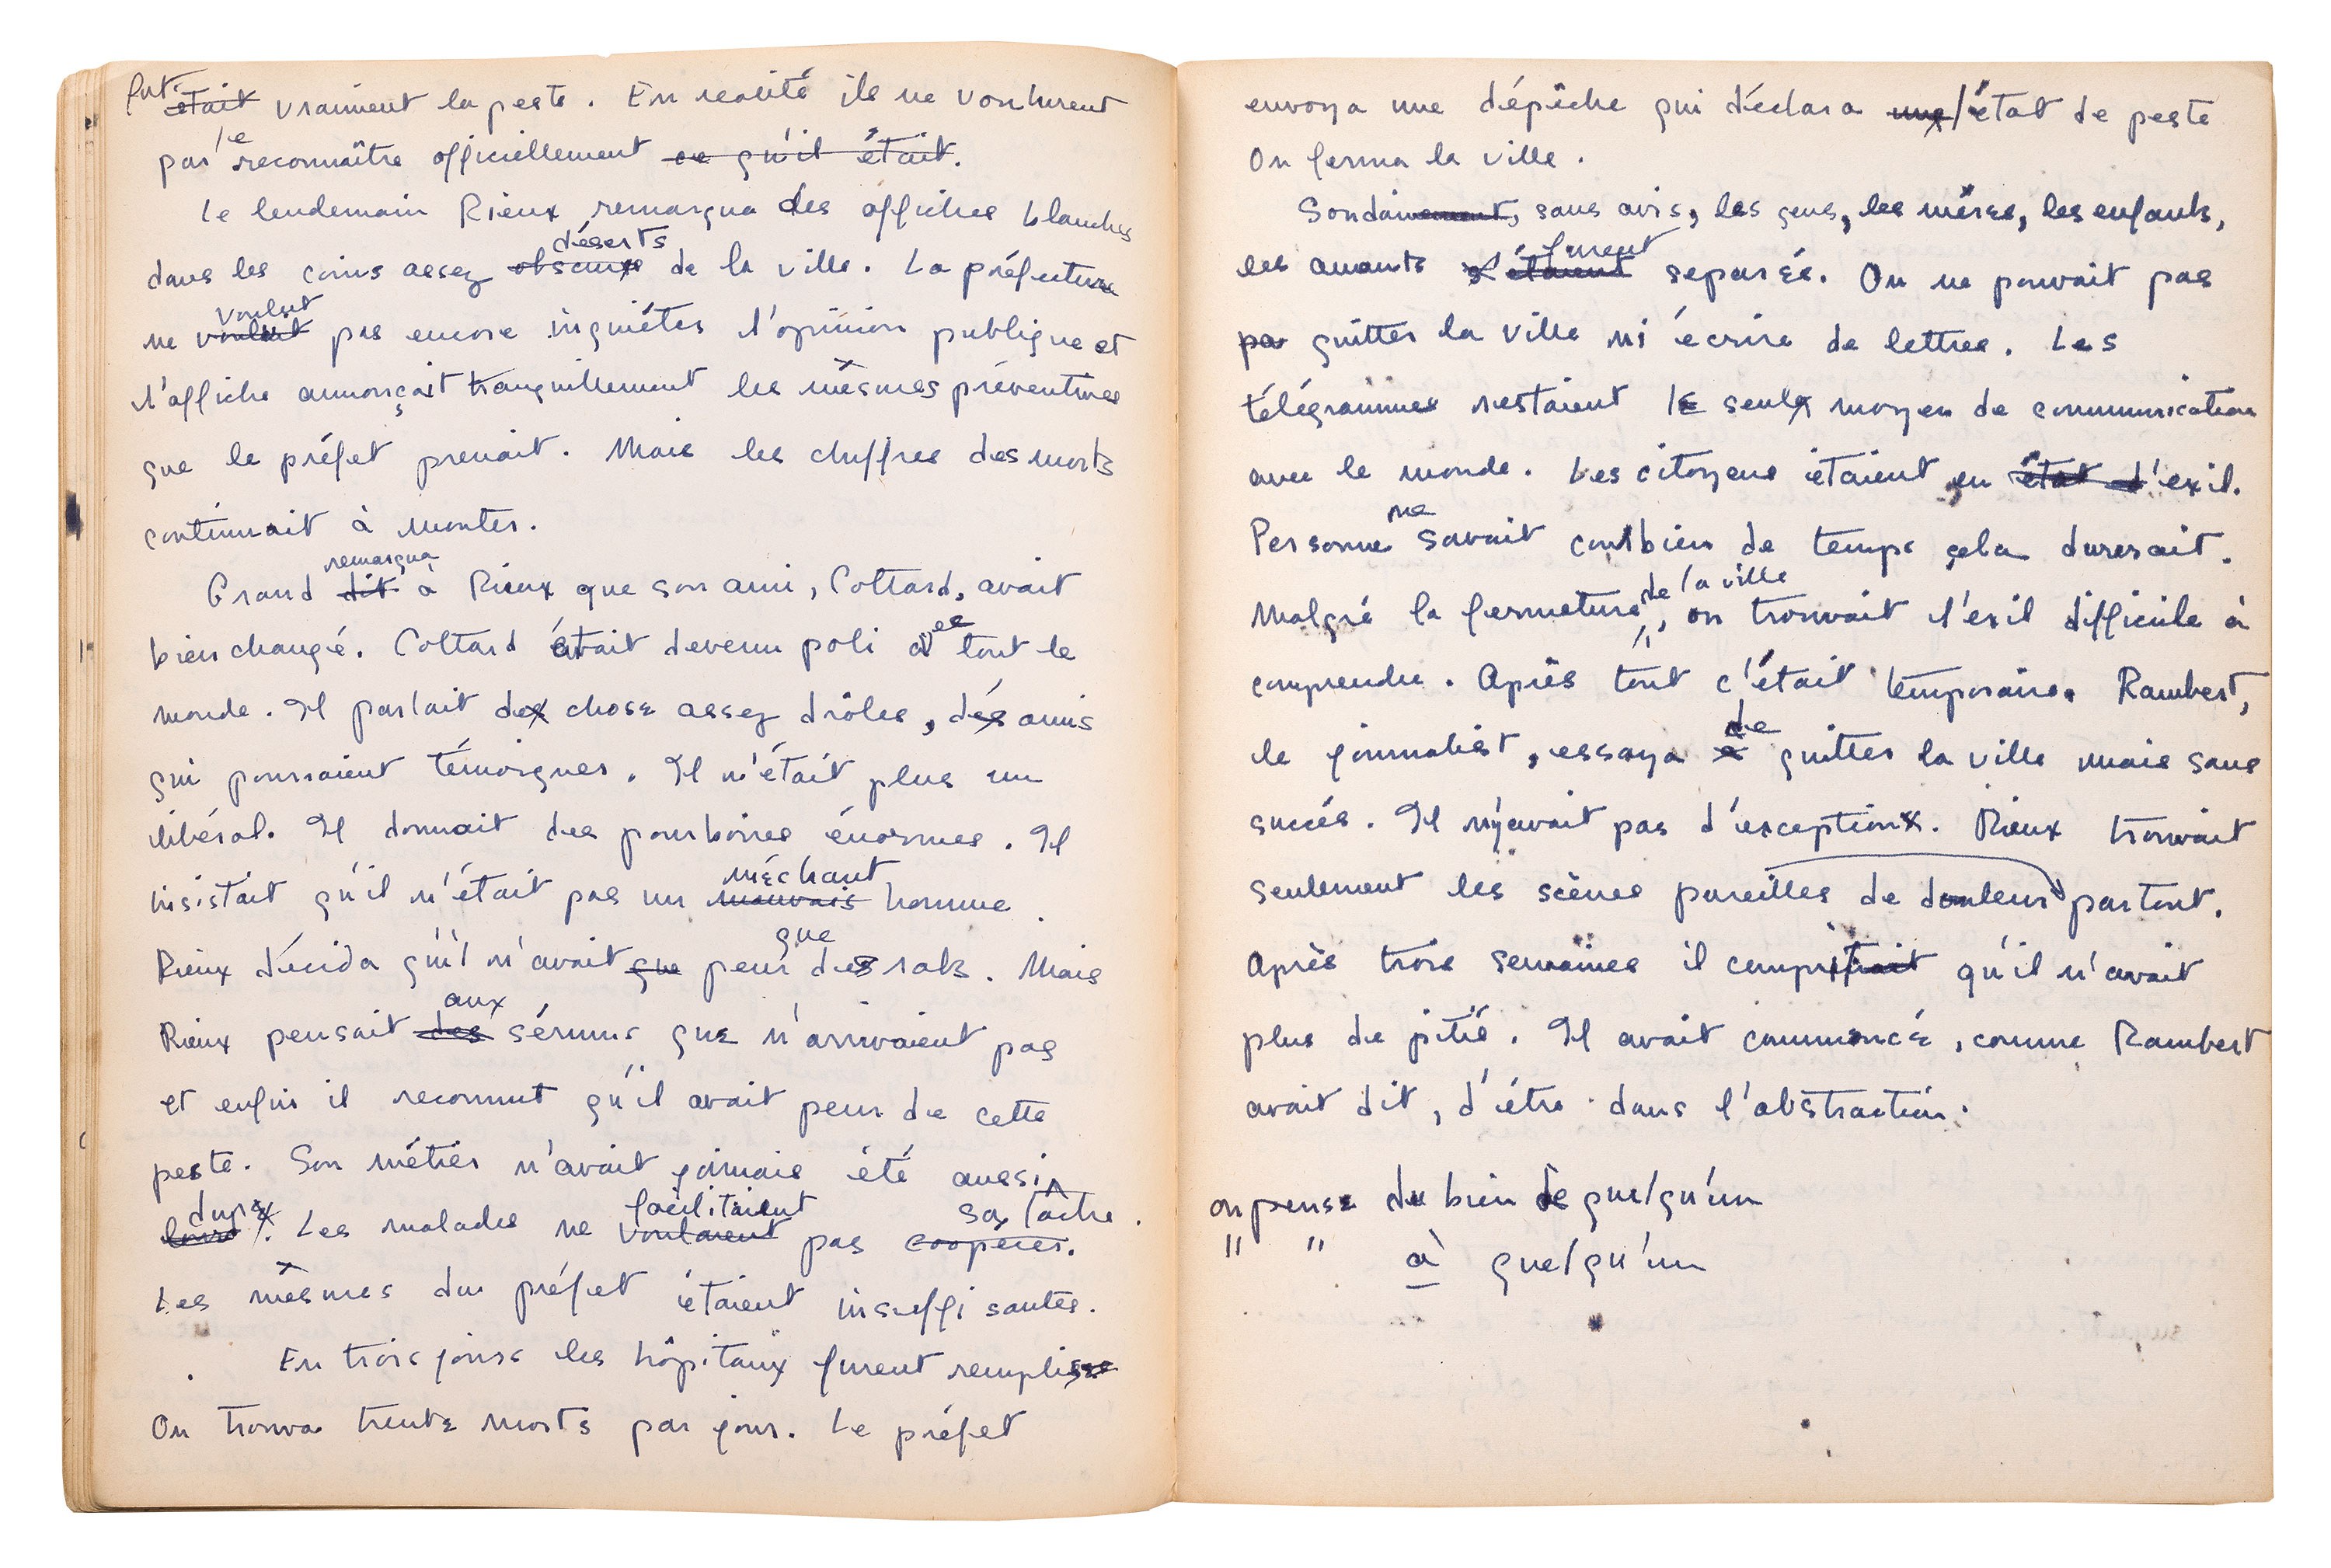 fut était vraiment la peste. En realité ils ne voulurent
pas le reconnaître officiellement ce qu'il était.
Le lendemain Rieux remarqua des affiches blanches
déserts
dans les coins assez obscurs de la ville. La préfecture
voulut
ne voulait pas encore inquiéter l'opinion publique et
l'affiche annonçait tranquillement les mêsmes préventives
que le préfet prenait. Mais les chiffres des morts
continuait à monter.
remarqua
Grand dit à Rieux que son ami, Cottard, avait
bien changé. Cottard était devenu poli avec tout le
monde. Il parlait de chose assez drôles, des amis
qui pourraient témoigner. Il n'était plus un
libéral. Il donnait des pourboires énormes. Il
méchant
insistait qu'il n'était pas un mauvais homme.
que
Rieux décida qu'il n'avait que peur des rats. Mais
aux
Rieux pensait des sérums que n'arrivaient pas
et enfin il reconnut qu'il avait peur de cette
peste. Son métier n'avait jamais été aussi
dur facilitaient sa tâche.
lourd. Les malades ne voulaient pas coopérer.
Les mêsmes du préfet étaient insuffisantes.
En trois jours les hôpitaux furent remplisse
On trouva trente morts par jour. Le préfet
envoya une dépêche qui déclara une l'état de peste
On ferma la ville.
Soudainement, sans avis, les gens, les mères, les enfants,
furent
les amants s'étaient separés. On ne pouvait pas
pa quitter la ville ni écrire de lettres. Les
télégrammes restaient le seul moyen de communication
avec le monde. Les citoyens étaient en état d'exil.
ne
Personne savait combien de temps cela durerait.
de la ville
Malgré la fermeture, on trouvait l'exil difficile à
comprendre. Après tout c'était temporaire. Rambert,
de
le journalist, essaya à quitter la ville mais sans
succés. Il n'y avait pas d'exception. Rieux trouvait
seulement les scènes pareilles de douleur partout.
Après trois semaines il compritrait qu'il n'avait
plus de pitié. Il avait commencé, comme Rambert
avait dit, d'être dans l'abstraction.
on pense du bien de quelqu'un
" " à quelqu'un